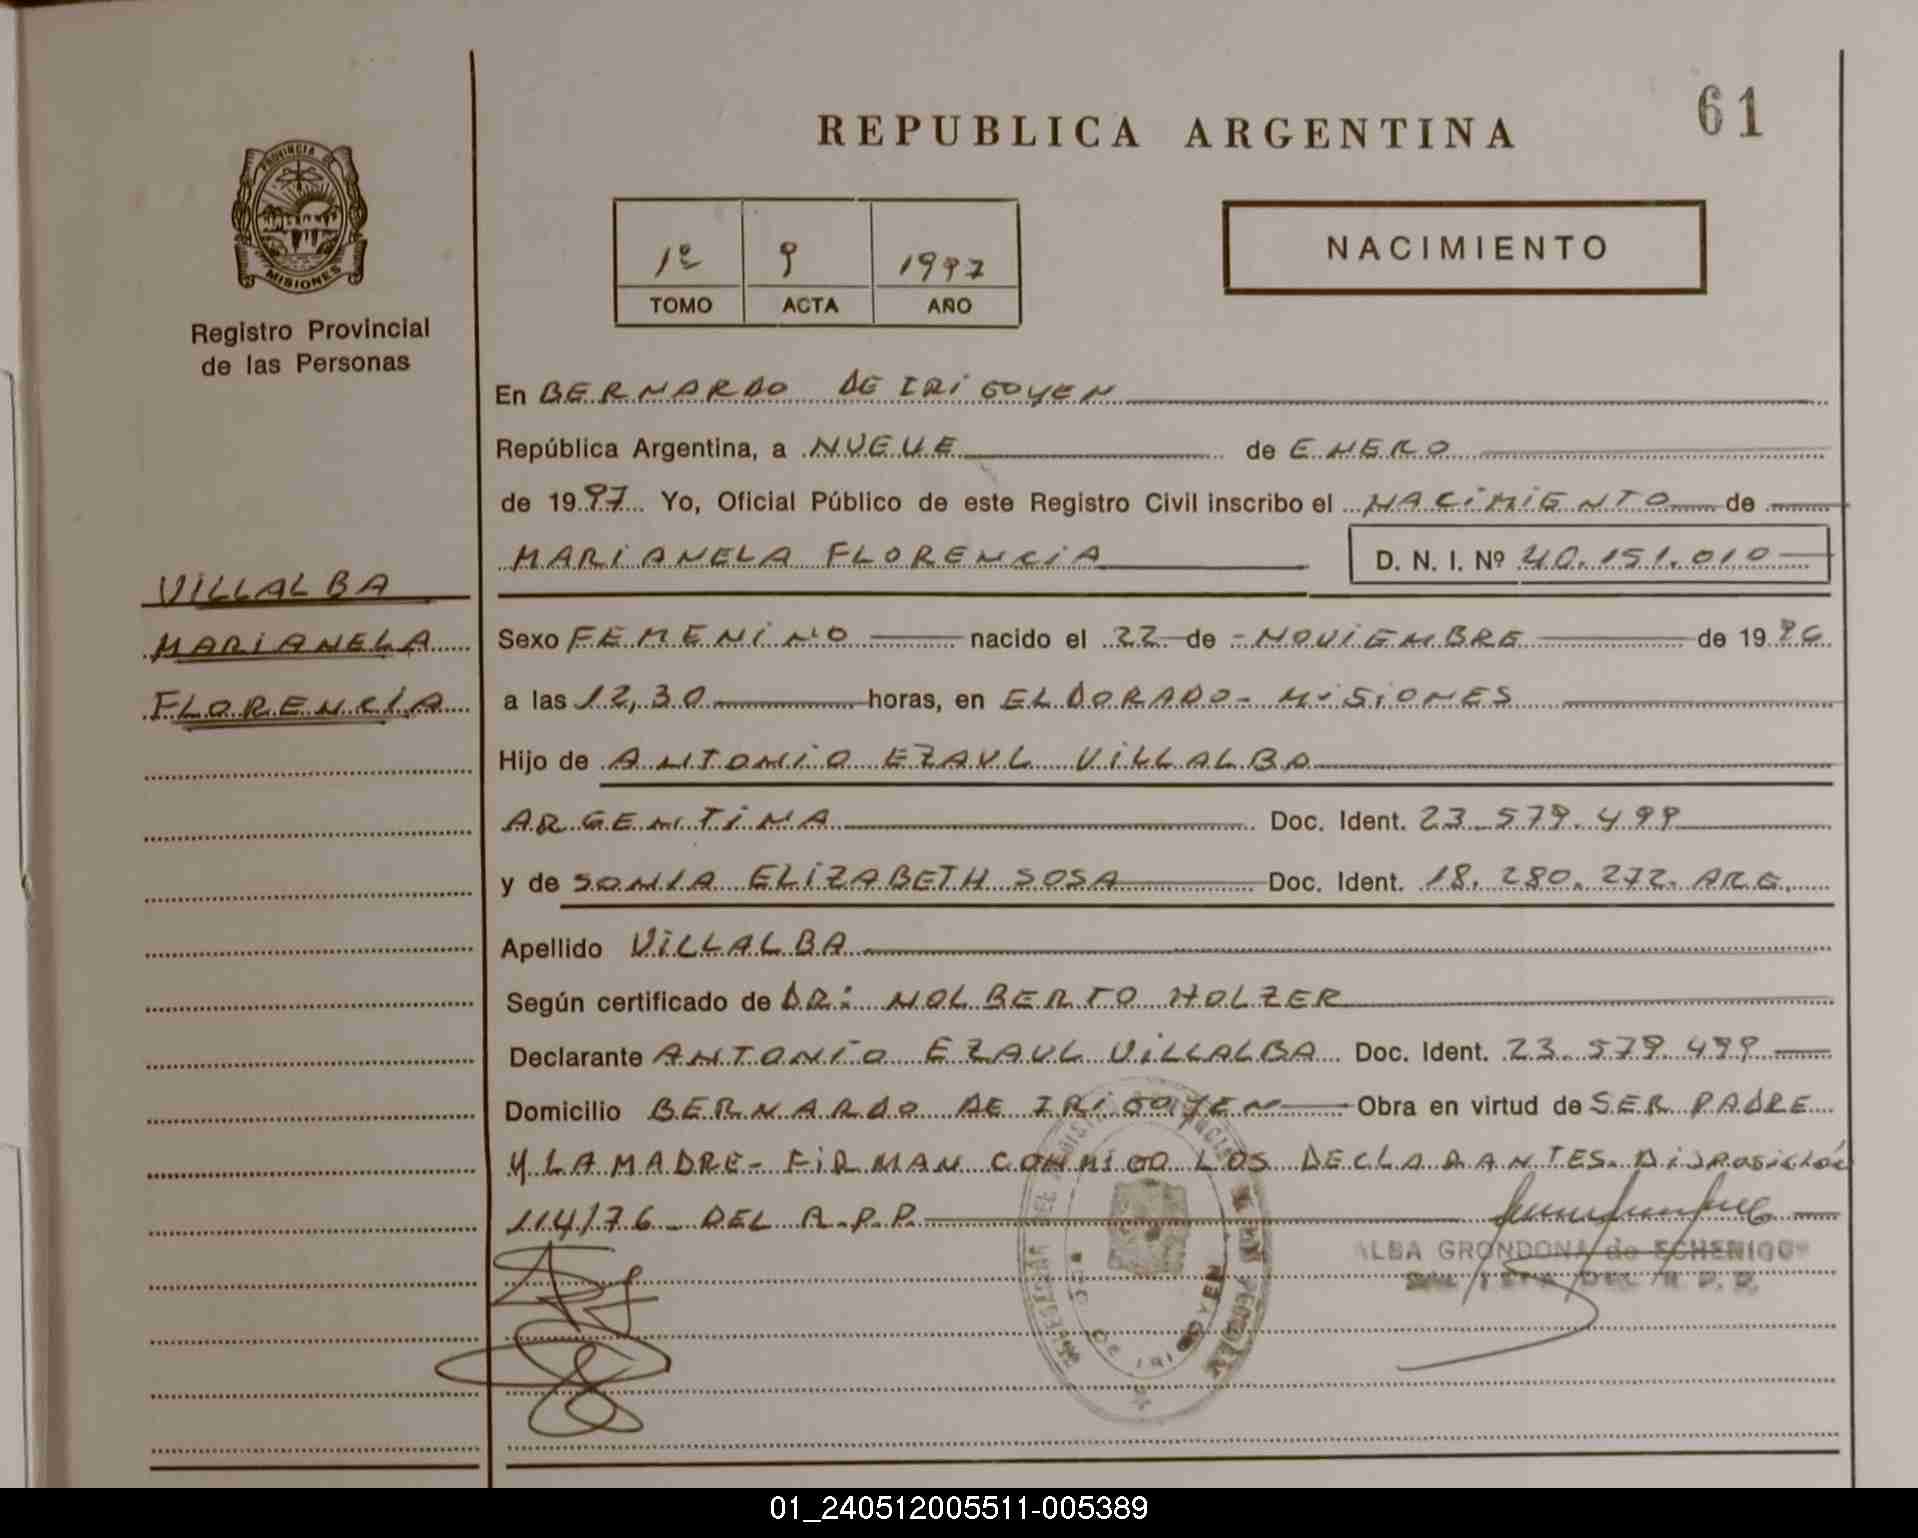 REPUBLICA ARGENTINA
61
PROVINCIA DE
MISIONES
Registro Provincial
de las Personas
1º 9 1997
TOMO ACTA AÑO
NACIMIENTO
En BERNARDO DE IRIGOYEN
República Argentina, a NUEVE de ENERO
de 1997 Yo, Oficial Público de este Registro Civil inscribo el NACIMIENTO de
MARIANELA FLORENCIA D. N. I. Nº 40.151.010
VILLALBA
MARIANELA
FLORENCIA
Sexo FEMENINO nacido el 22 de NOVIEMBRE de 1996
a las 12,30 horas, en ELDORADO - MISIONES
Hijo de ANTONIO EZAUL VILLALBA
ARGENTINA Doc. Ident. 23.579.499
y de SONIA ELIZABETH SOSA Doc. Ident. 18.280.272. ARG.
Apellido VILLALBA
Según certificado de DR: NOLBERTO HOLZER
Declarante ANTONIO EZAUL VILLALBA Doc. Ident. 23.579.499
Domicilio BERNARDO DE IRIGOYEN Obra en virtud de SER PADRE
Y LA MADRE - FIRMAN CONMIGO LOS DECLARANTES. DISPOSICIÓN
114/76 DEL R.P.P.
ALBA GRONDONA de
DEL R. P. P.
01_240512005511-005389